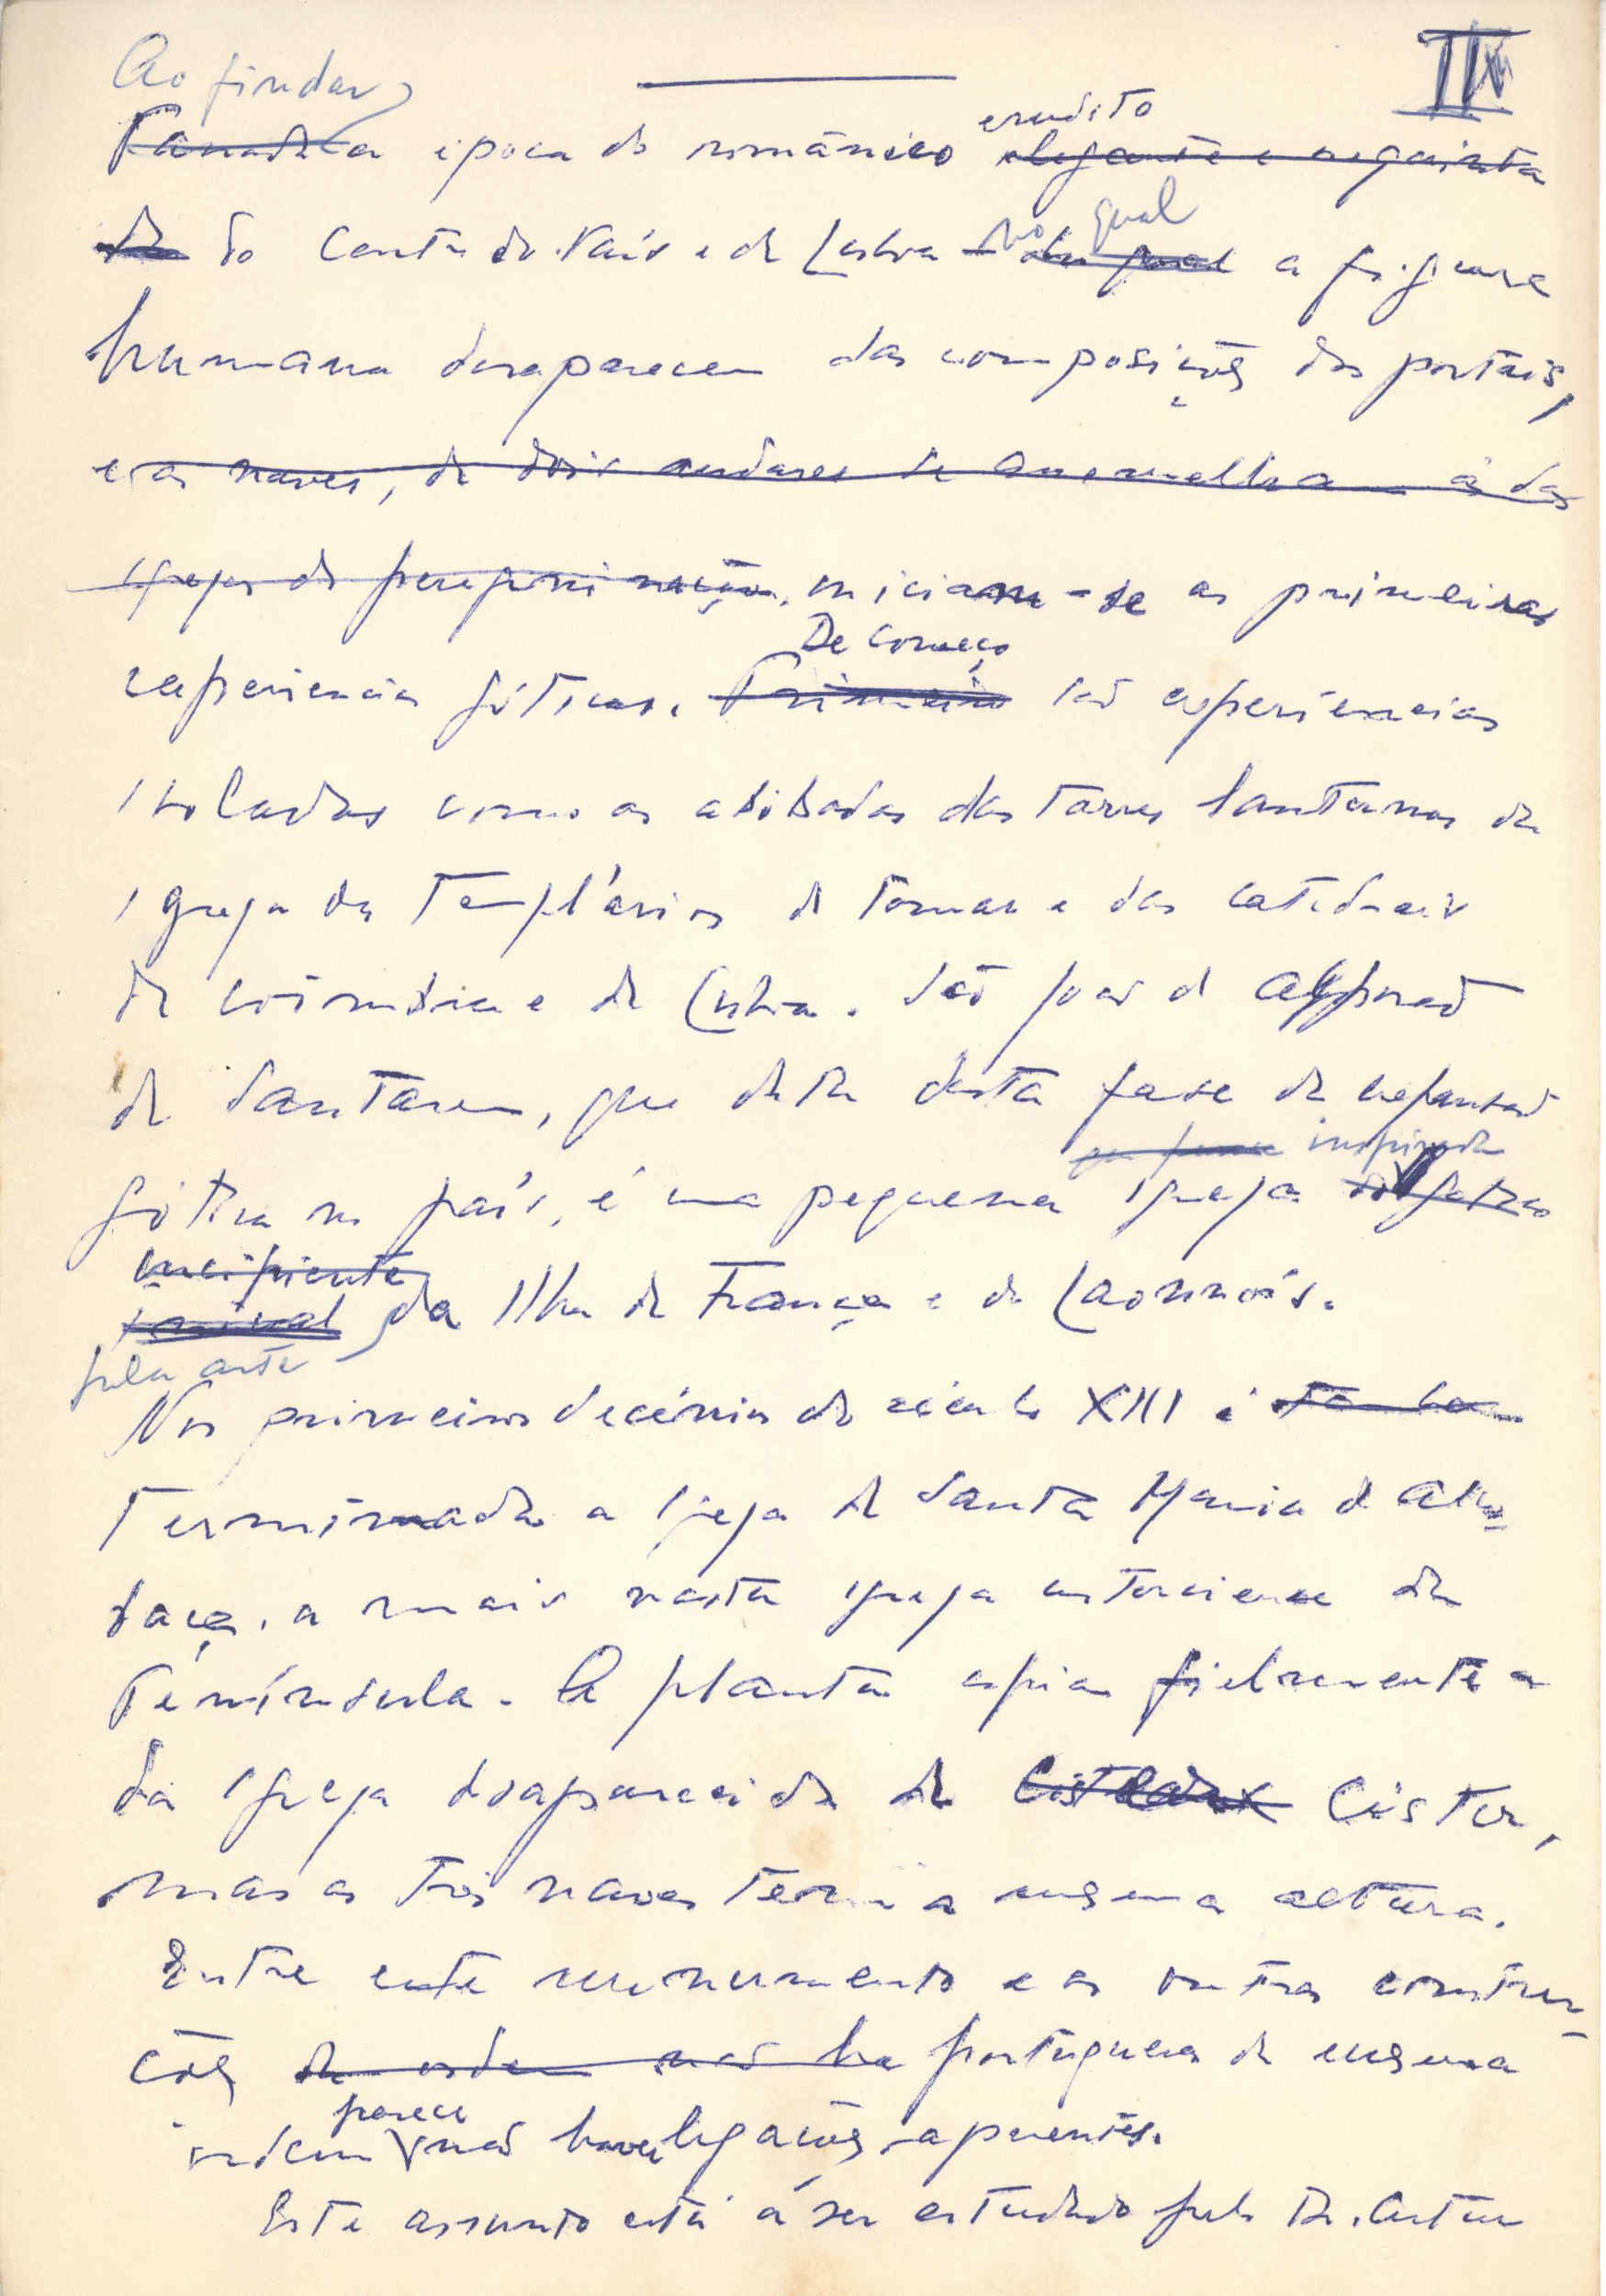 III
Ao findar
~~Passada~~ a época do românico ~~elegante e requinta~~ erudito
~~do~~ do Centro do País e de Lisboa ~~da qual~~ no qual a figura
humana desaparece das composições dos portais,
~~e as naves, de dois andares se assemelha às das~~
~~igrejas de peregrinação,~~ iniciam-se as primeiras
experiencias góticas. ~~Primeiro~~ De começo são experiencias
isoladas como as abóbadas das torres lanternas da
igreja dos Templários de Tomar e das catedrais
de Coimbra e de Lisboa. São João de Alporão
de Santarem, que data desta fase da expansão
gótica no país, é uma pequena igreja inspirada
~~incipiente~~
pela arte da Ilha de França e do Laonnois.
Nos primeiros decénios do século XIII é ~~tambem~~
terminada a igreja de Santa Maria de Alco-
baça, a mais vasta igreja cisterciense da
Península. A planta copia fielmente a
da igreja desaparecida de Cister,
mas as três naves tem a mesma altura.
Entre este monumento e as outras constru-
ções ~~da ordem não ha~~ portuguesas da mesma
ordem parece não haver ligações aparentes.
Este assunto está a ser estudado pelo Dr. Artur